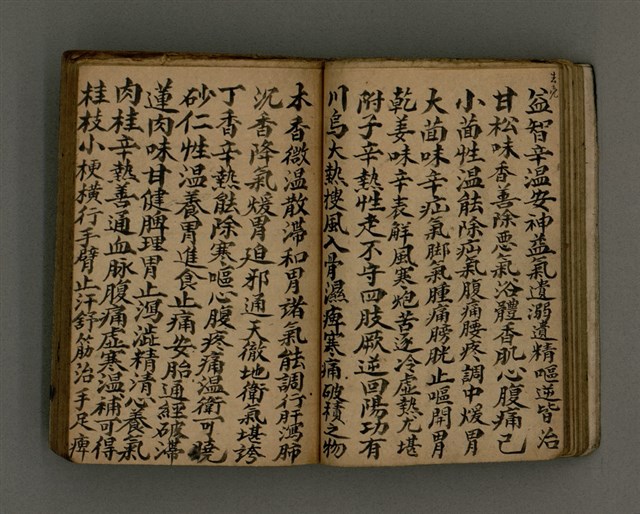 益智辛温安神益氣遺溺遺精嘔逆皆治
甘松味香善除悪氣浴體香肌心腹痛已
小茴性温能除疝氣腹痛腰疼調中煖胃
大茴味辛疝氣脚氣腫痛膀胱止嘔開胃
乾姜味辛表解風寒炮苦逐冷虛熱尤堪
附子辛熱性走不守四肢厥逆回陽功有
川烏大熱搜風入骨濕痺寒痛破積之物
木香微温散滯和胃諸氣能調行肝瀉肺
沉香降氣煖胃追邪通天徹地衛氣堪誇
丁香辛熱能除寒嘔心腹疼痛温衛可曉
砂仁性温養胃進食止痛安胎通經破滯
蓮肉味甘健脾理胃止瀉澁精清心養氣
肉桂辛熱善通血脉腹痛虛寒温補可得
桂枝小梗横行手臂止汗舒筋治手足痺